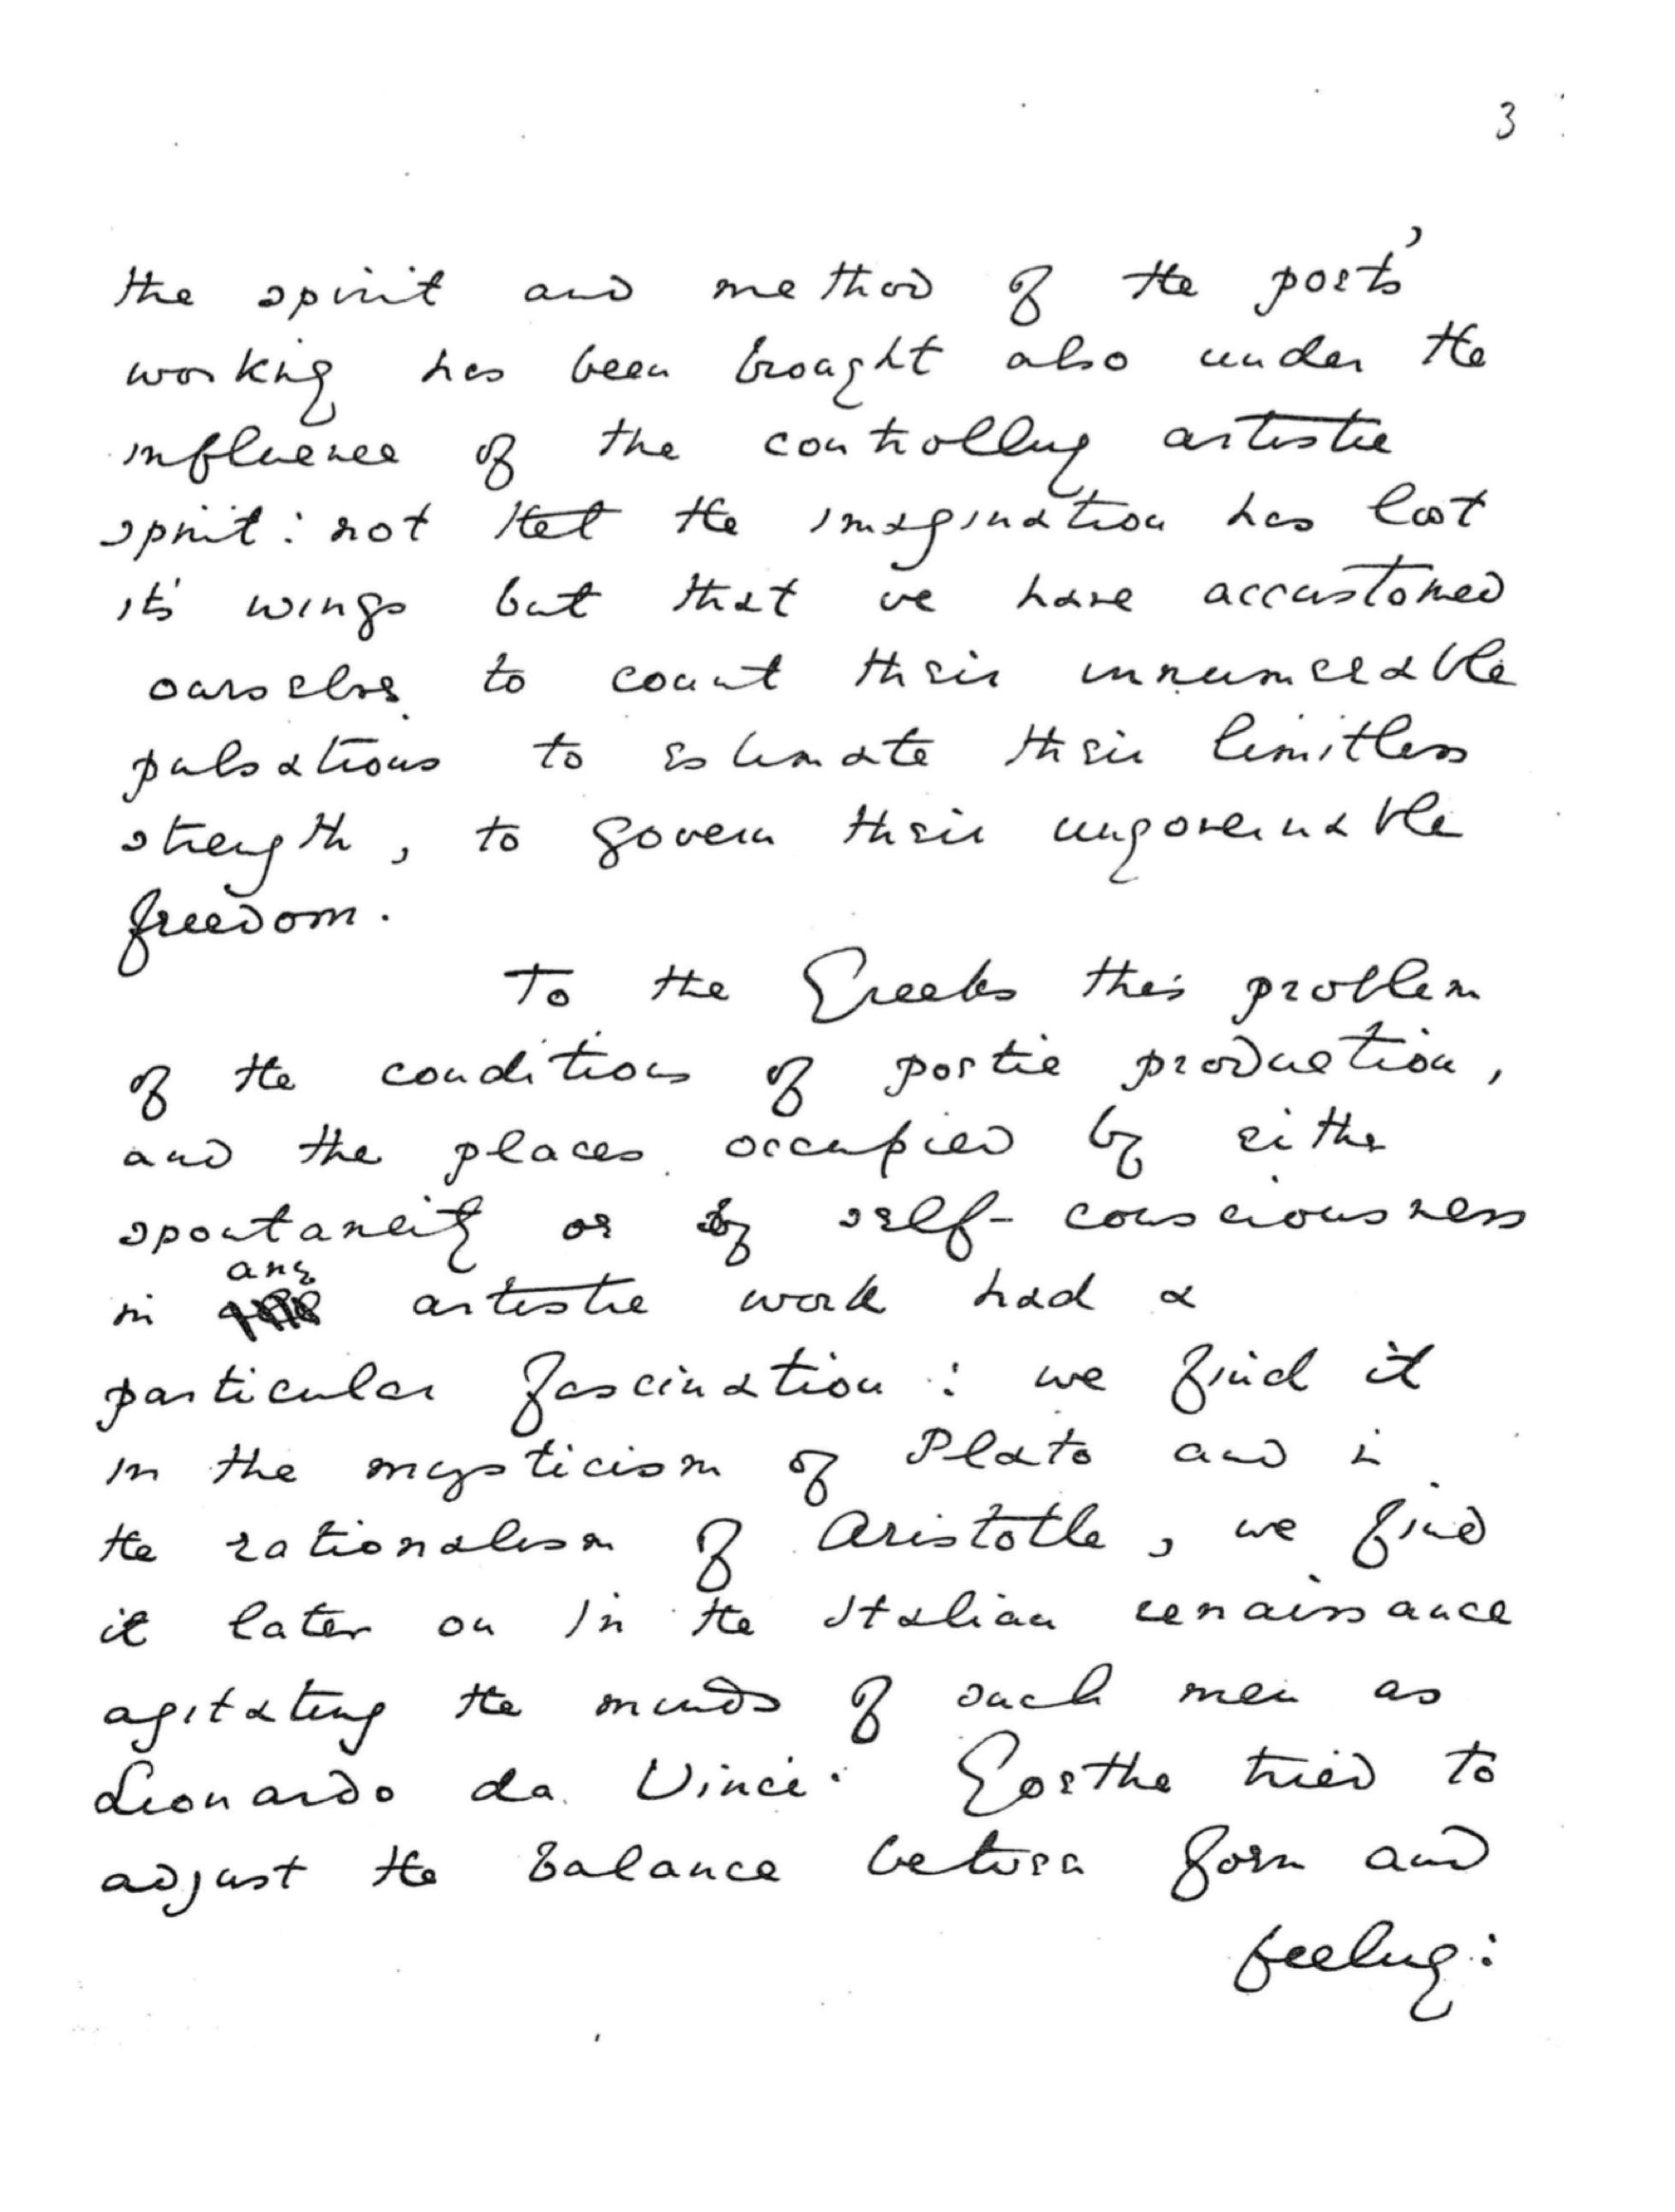 3
the spirit and method of the poets'
working has been brought also under the
influence of the controlling artistic
spirit: not that the imagination has lost
its' wings but that we have accustomed
ourselves to count their innumerable
pulsations to estimate their limitless
strength, to govern their ungovernable
freedom.
To the Greeks this problem
of the conditions of poetic production,
and the places occupied by either
spontaneity or by self-consciousness
any
in artistic work had a
particular fascination: we find it
in the mysticism of Plato and in
the rationalism of Aristotle, we find
it later on in the Italian renaissance
agitating the minds of such men as
Leonardo da Vinci. Goethe tried to
adjust the balance between form and
feeling: